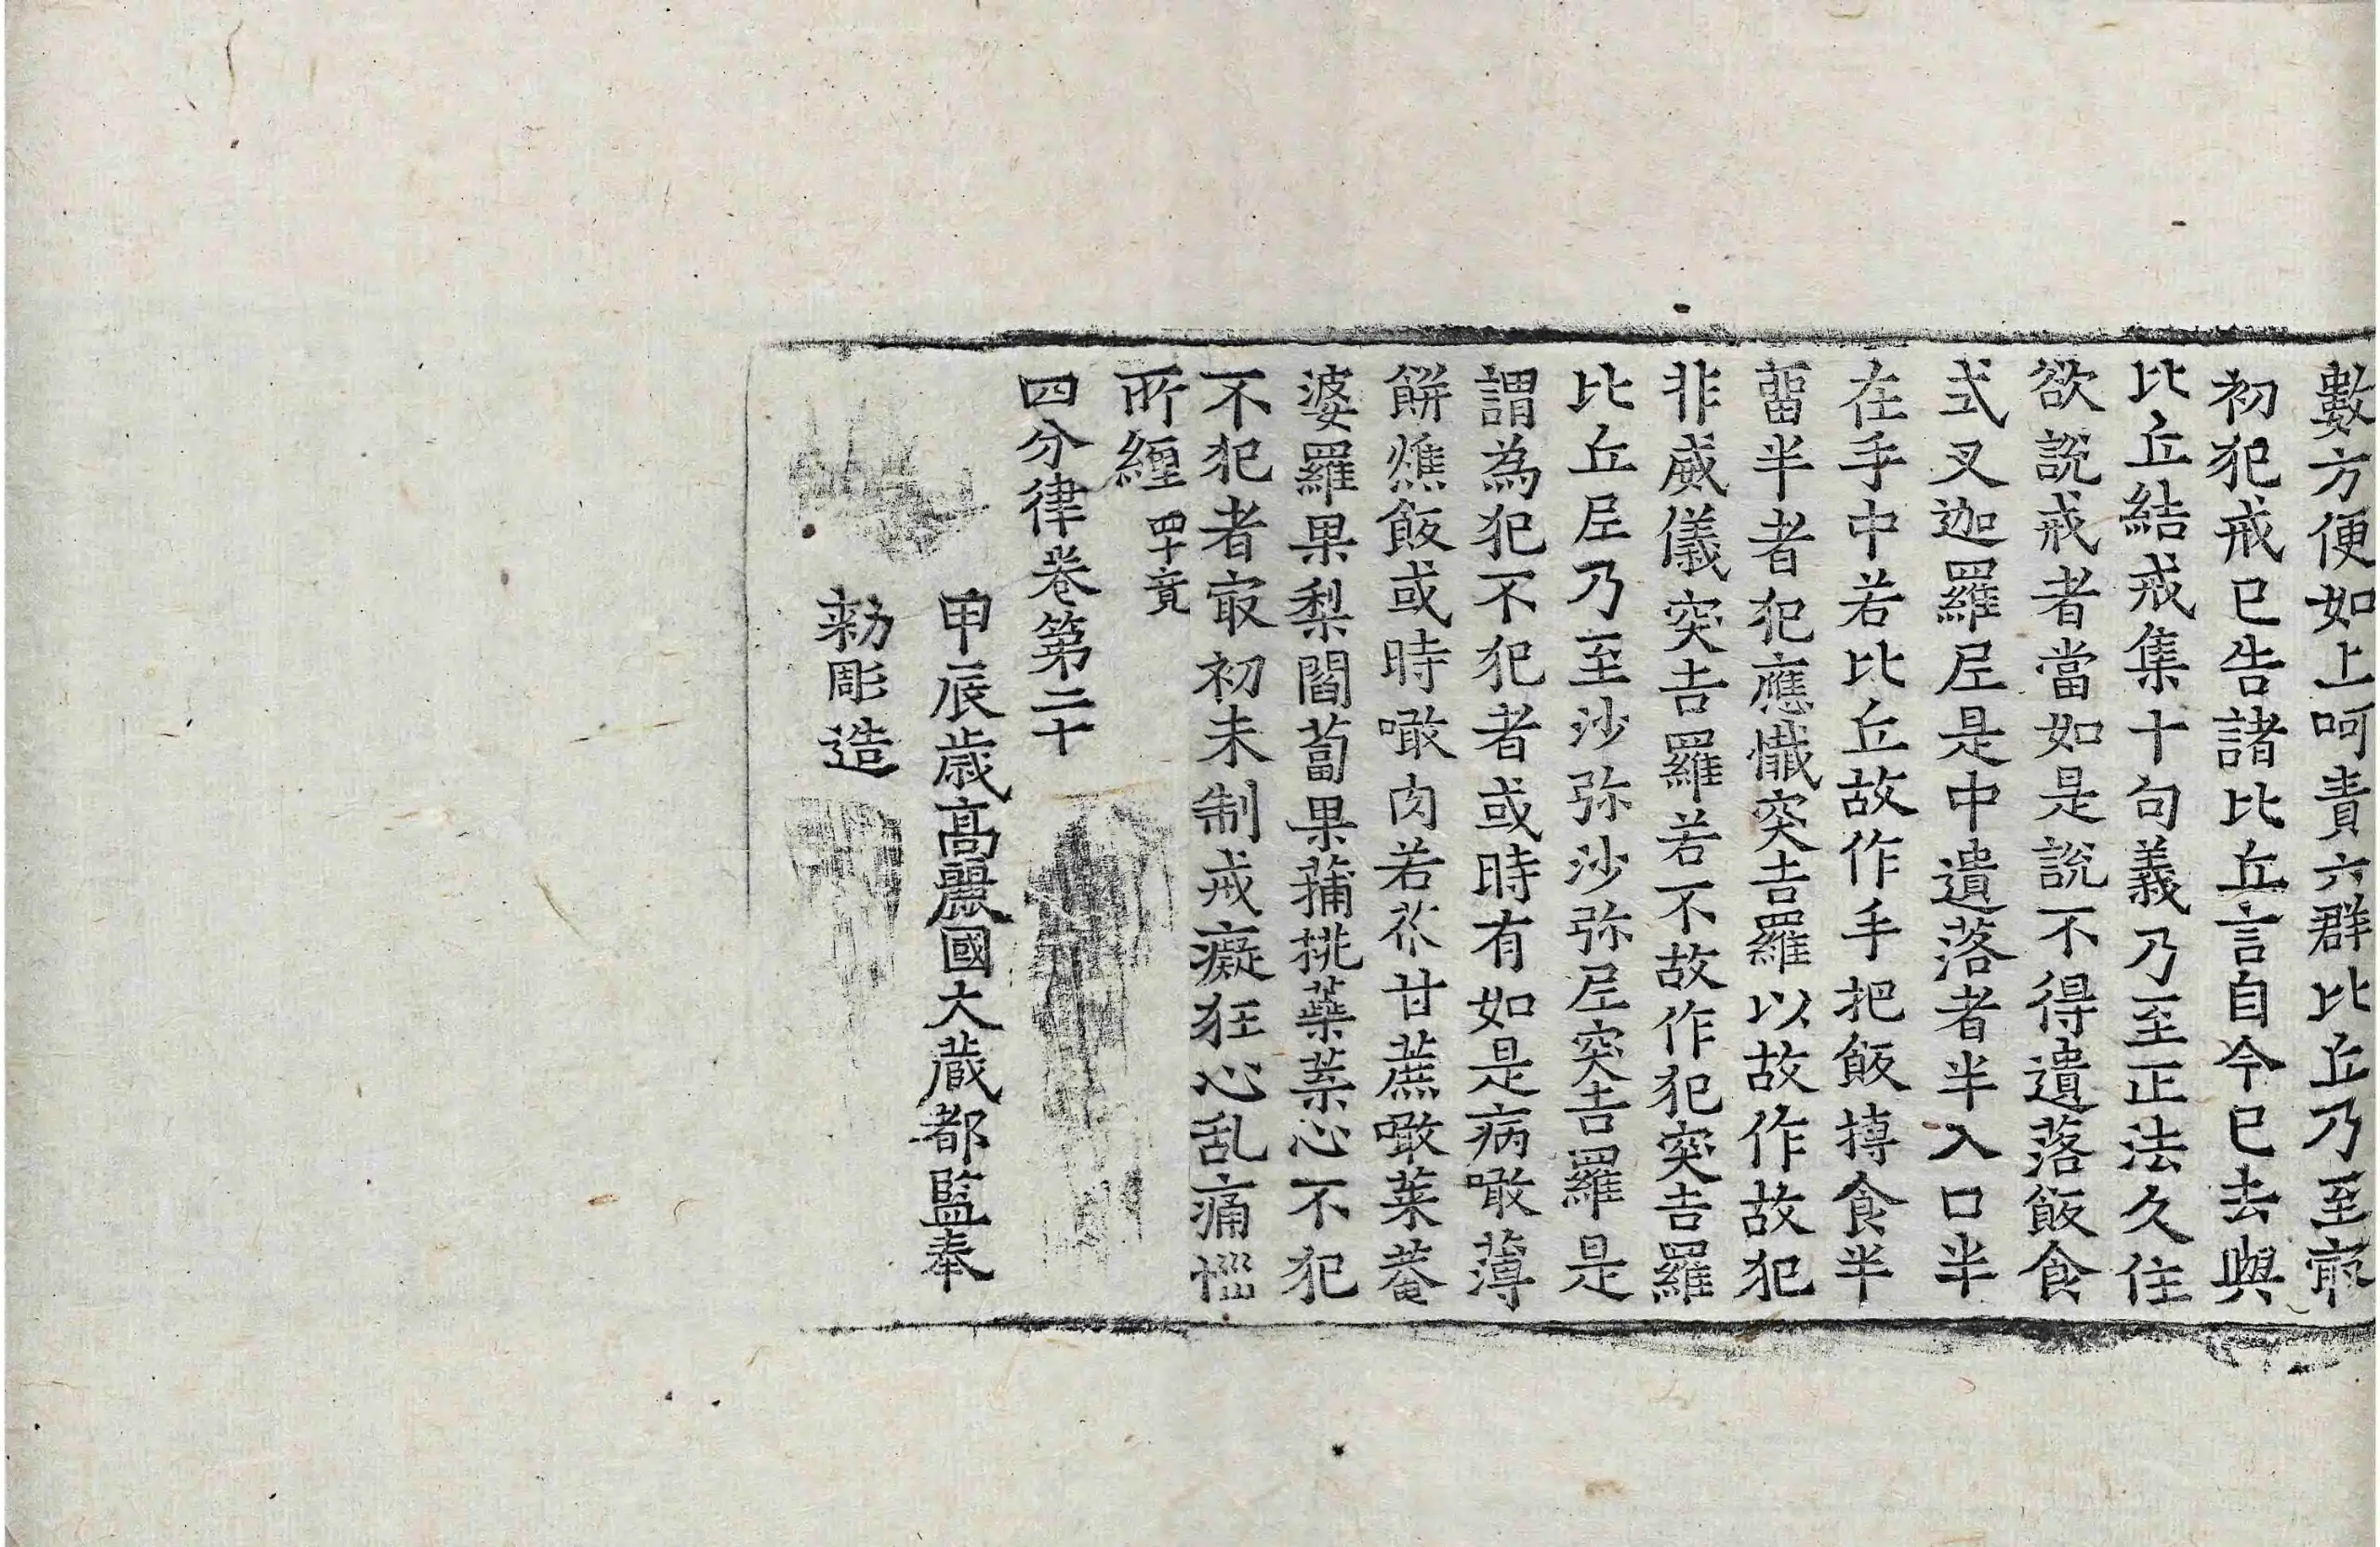 數方便如上呵責六群比丘乃至㝡
初犯戒已告諸比丘言自今已去與
比丘結戒集十句義乃至正法久住
欲說戒者當如是說不得遺落飯食
式叉迦羅尼是中遺落者半入口半
在手中若比丘故作手把飯摶食半
留半者犯應懺突吉羅以故作故犯
非威儀突吉羅若不故作犯突吉羅
比丘尼乃至沙弥沙弥尼突吉羅是
謂為犯不犯者或時有如是病噉薄
餅燋飯或時噉肉若苽甘蔗噉菜菴
婆羅果梨閻蔔果蒱桃蘂葉心不犯
不犯者㝡初未制戒癡狂心乱痛惱
所纏 四十竟
四分律卷第二十
甲辰歲高麗國大藏都監奉
勑彫造